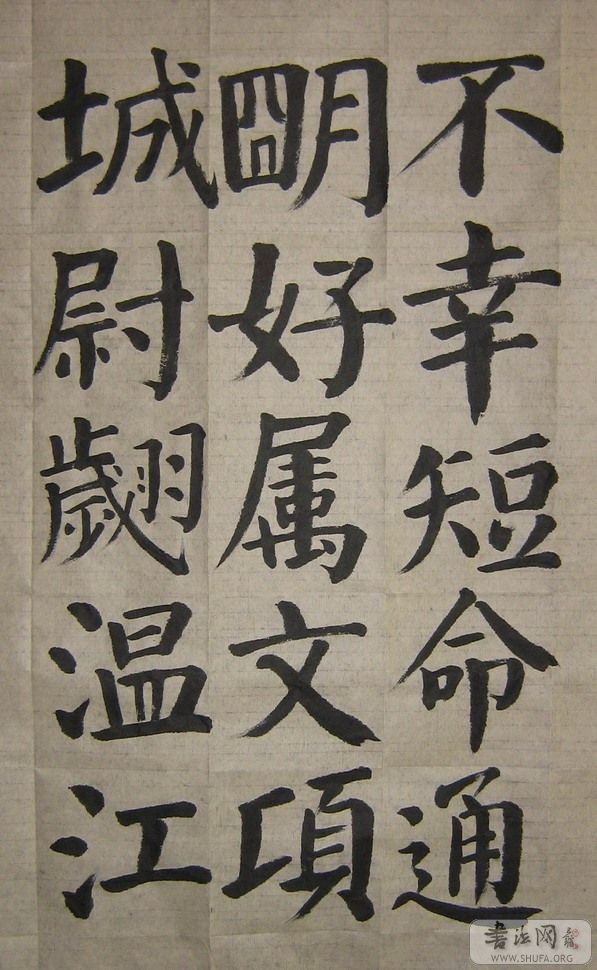 不幸短命通
朙好属文項
城尉翽温江
書法网
WWW.SHUFA.ORG